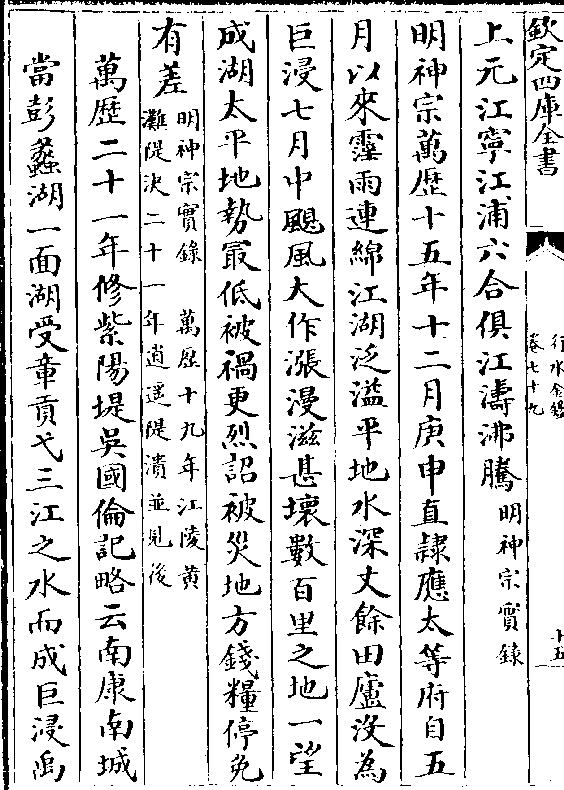 欽定四庫全書
行水金鑑
卷七十九
十五
上元江寧江浦六合俱江濤沸騰明神宗實錄
明神宗萬歷十五年十二月庚申直隷應太等府自五
月以來霪雨連綿江湖泛溢平地水深丈餘田廬沒為
巨浸七月中颶風大作漲漫滋甚壞數百里之地一望
成湖太平地勢最低被禍更烈詔被災地方錢糧停免
有差明神宗實錄 萬歷十九年江陵黄
灘隄決二十一年逍遥隄潰並見後
萬歷二十一年修紫陽堤吳國倫記略云南康南城
當彭蠡湖一面湖受章貢弋三江之水而成巨浸禹